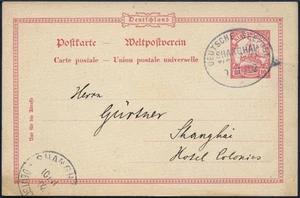 Deutschland
Postkarte – Weltpostverein
Carte postale – Union postale universelle
DEUTSCHE SEEPOST
SHANGHAI
Herrn
Gürtner
Shanghai
Hotel Colonies
SHANGHAI